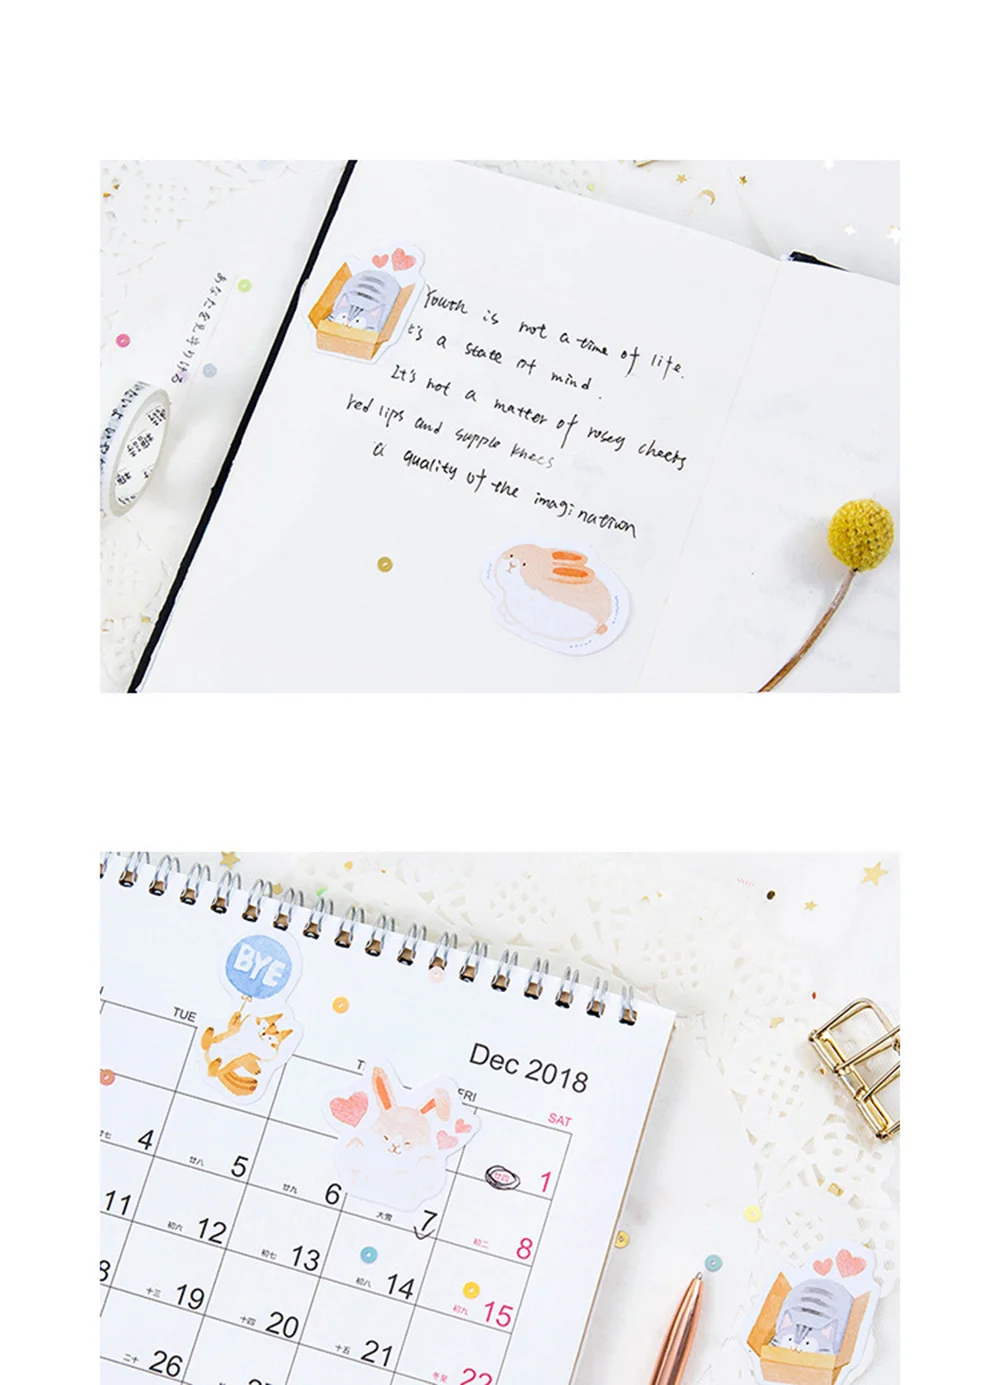 Youth is not a time of life.
t's a state of mind.
It's not a matter of rosey cheers
red lips and supple knees
a quality of the imagination
BYE
Dec 2018
TUE
T
FRI
SAT
4 廿八 5 廿九 6 大雪 7 初二 8 1
11 初六 12 初七 13 初八 14 初九 15
十三 19 十四 20 十五 21 冬至 22
二十 26